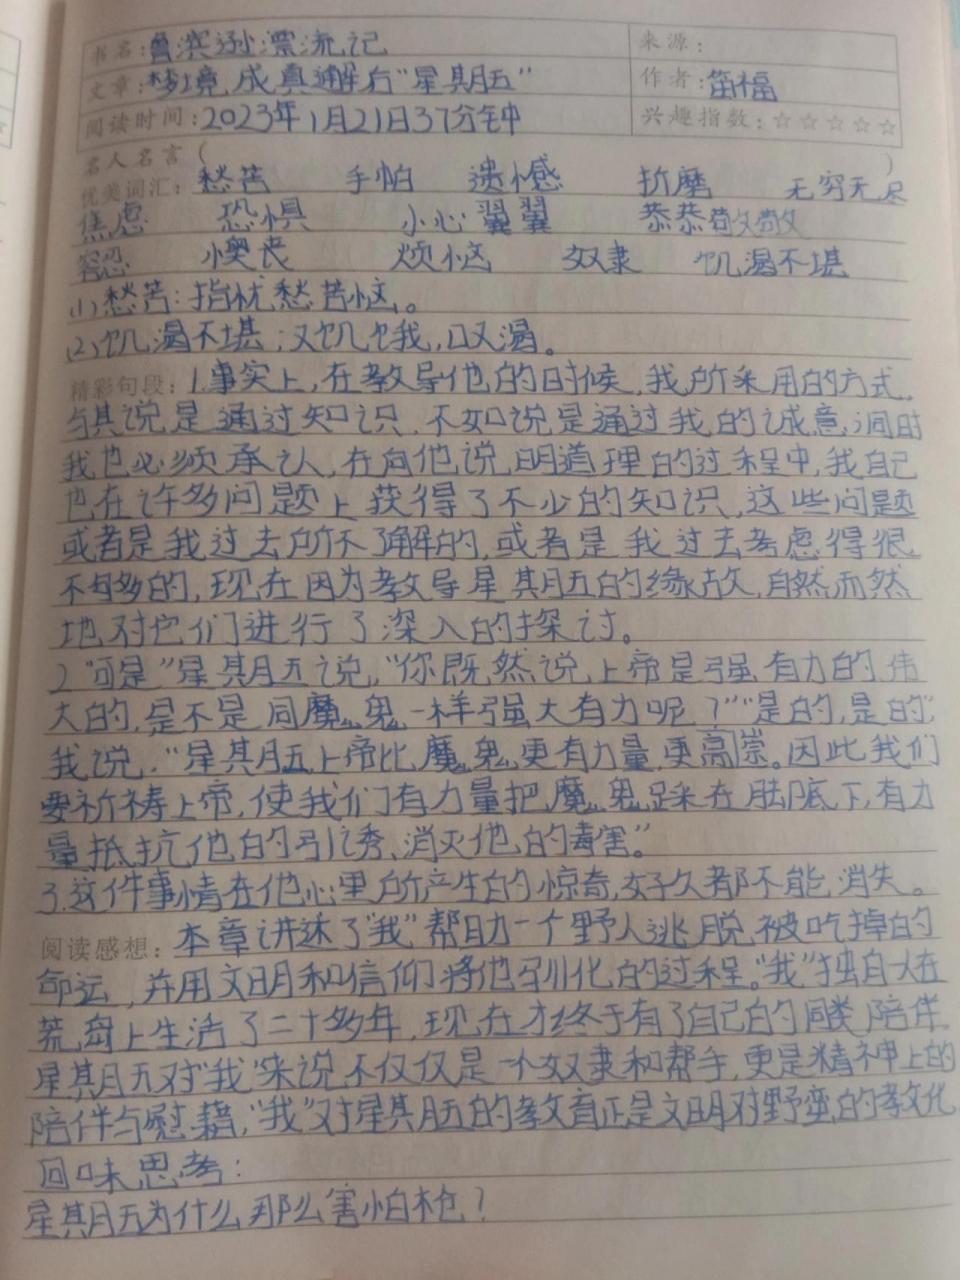 书名:鲁滨逊漂流记 来源:
文章:梦境成真,解右“星期五” 作者:笛福
阅读时间:2023年1月21日37分钟 兴趣指数:☆☆☆☆☆
名人名言( )
优美词汇:愁苦 手帕 遗憾 折磨 无穷无尽
焦虑 恐惧 小心翼翼 恭恭敬敬
容忍 懊丧 烦恼 奴隶 饥渴不堪
(1)愁苦:指忧愁苦恼。
(2)饥渴不堪;又饥饿,又渴。
精彩句段:1.事实上,在教导他的时候,我所采用的方式,
与其说是通过知识,不如说是通过我的诚意;同时
我也必须承认,在向他说明道理的过程中,我自己
也在许多问题上获得了不少的知识,这些问题
或者是我过去所不了解的,或者是我过去考虑得很
不够多的,现在因为教导星期五的缘故,自然而然
地对它们进行了深入的探讨。
2.“可是”星期五说,“你既然说上帝是强有力的,伟
大的,是不是同魔鬼一样强大有力呢?”“是的,是的”,
我说,“星期五上帝比魔鬼更有力量,更高崇。因此我们
要祈祷上帝,使我们有力量把魔鬼踩在脚底下,有力
量抵抗他的引诱,消灭他的毒害。”
3.这件事情在他心里所产生的惊奇,好久都不能消失。
阅读感想:本章讲述了“我”帮助一个野人逃脱被吃掉的
命运,并用文明和信仰将他驯化的过程。“我”独自在
荒岛上生活了二十多年,现在才终于有了自己的同类陪伴,
星期五对“我”来说不仅仅是一个奴隶和帮手,更是精神上的
陪伴与慰藉,“我”对星期五的教育正是文明对野蛮的教化
回味思考:
星期五为什么那么害怕枪?